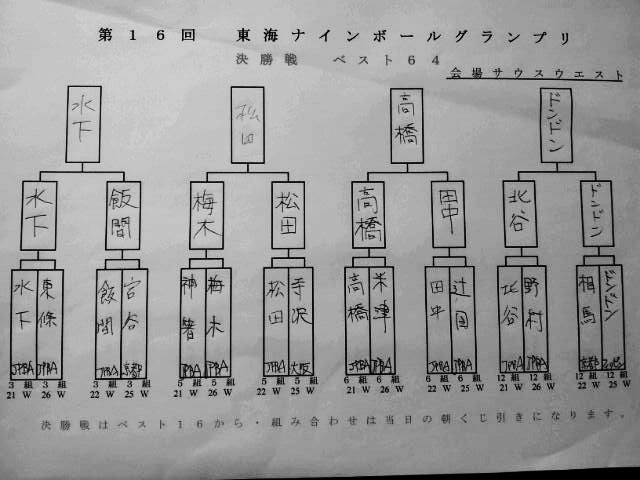 第16回 東海ナインボールグランプリ
決勝戦 ベスト64
会場サウスウエスト
水下 松田 高橋 ドンドン
水下 飯間 梅木 松田 高橋 田中 北谷 ドンドン
水下 東條 飯間 宮谷 神箸 梅木 松田 手沢 高橋 米津 田中 辻岡 北谷 野村 相馬 ドンドン
JPBA JPBA JPBA 京都 JPBA JPBA JPBA 大阪 JPBA JPBA JPBA JPBA JPBA JPBA 京都
3組 3組 3組 3組 5組 5組 5組 5組 6組 6組 6組 6組 12組 12組 12組 12組
21W 26W 22W 25W 21W 26W 22W 25W 21W 26W 22W 25W 21W 26W 22W 25W
決勝戦はベスト16から・組み合わせは当日の朝くじ引きになります。